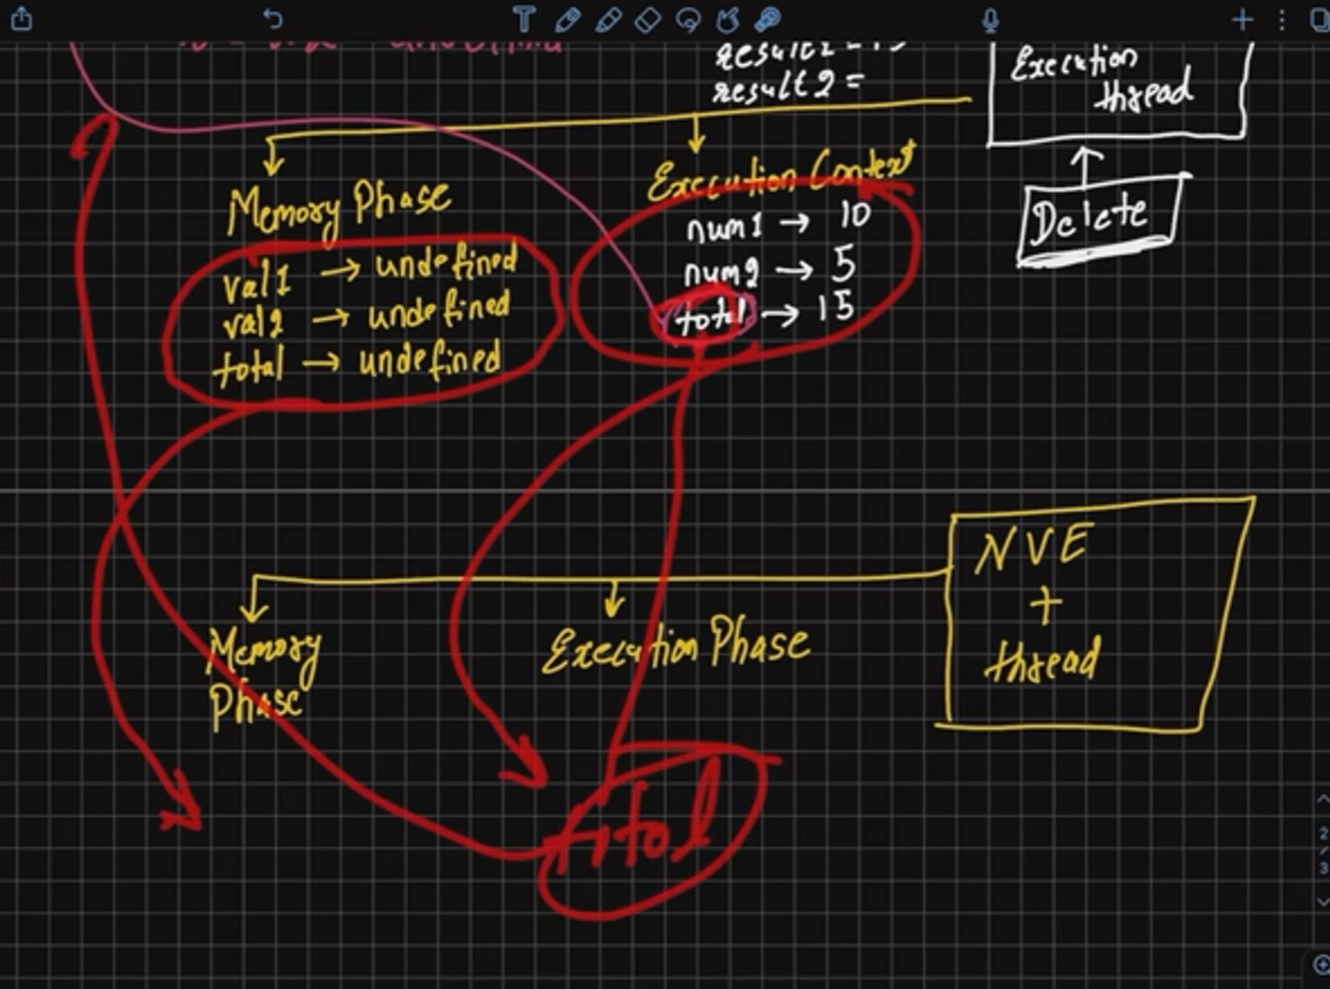 result2 =
Execution
thread
Memory Phase
val1 → undefined
val2 → undefined
total → undefined
Execution Context
num1 → 10
num2 → 5
total → 15
Delete
NVE
+
thread
Memory
Phase
Execution Phase
total
2
/
3